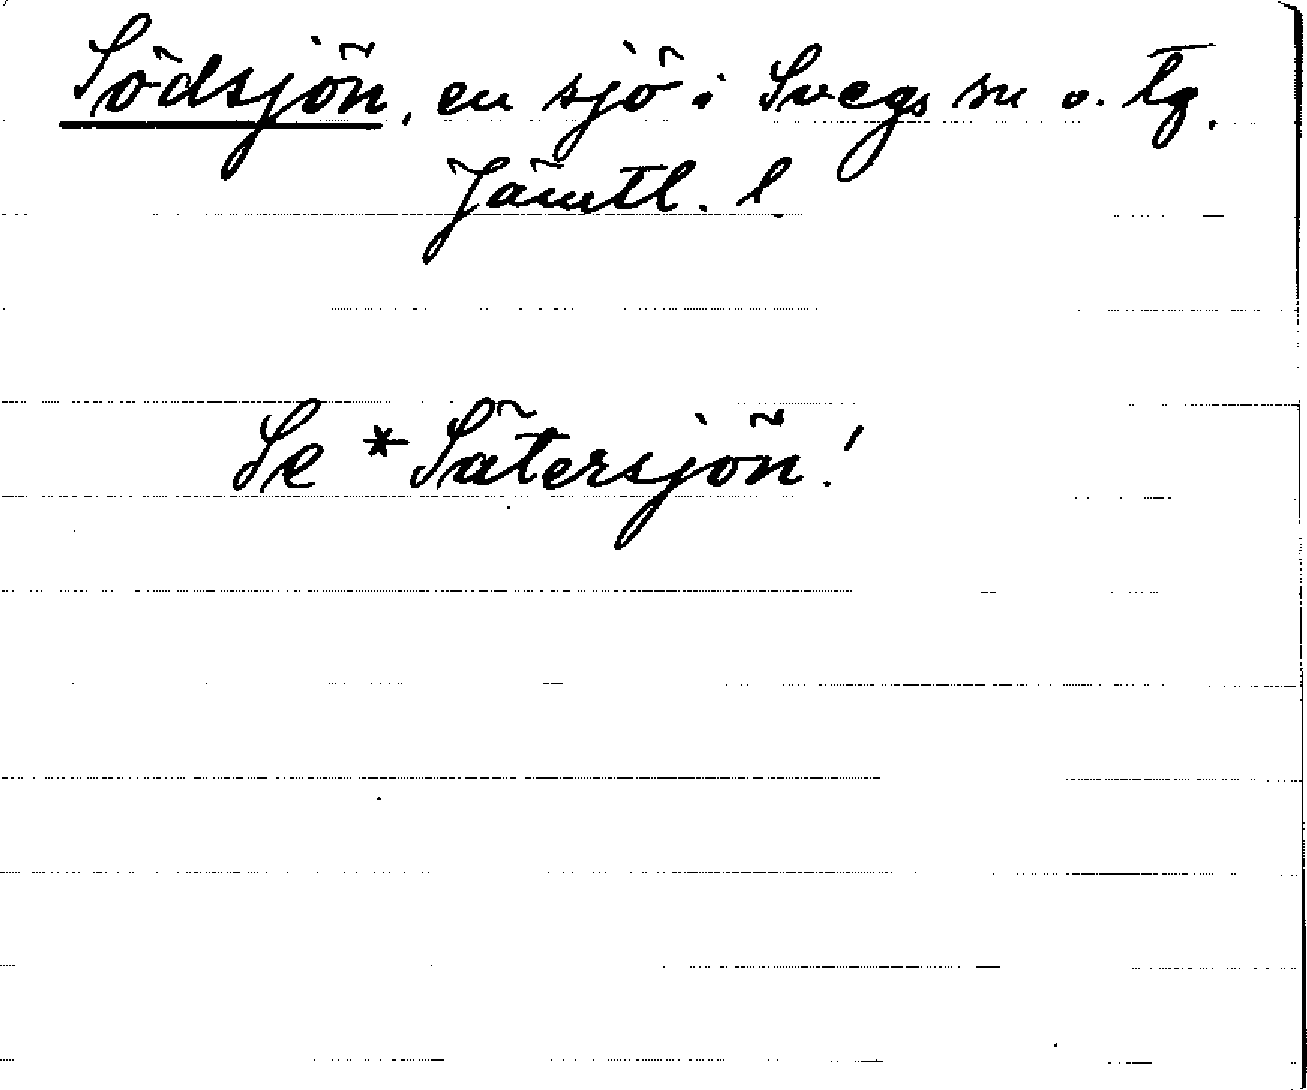 Södsjön, en sjö i Svegs sn o. tg.
Jämtl. l.
Se *Sätersjön!